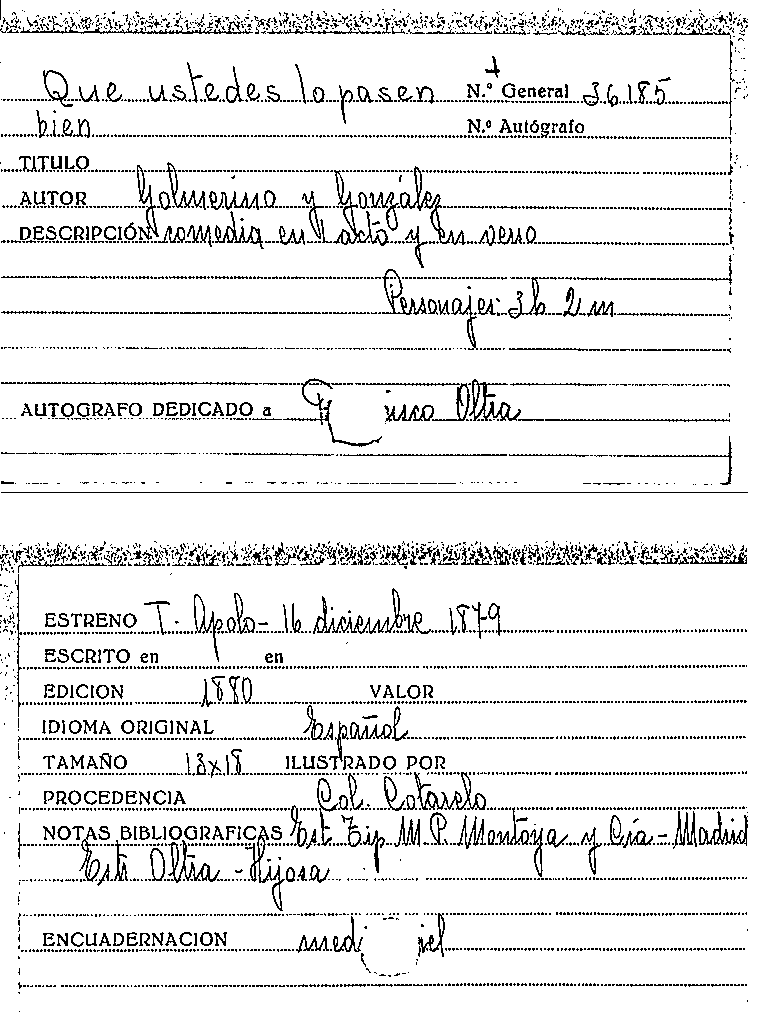 Que ustedes lo pasen N.º General 36185
bien N.º Autógrafo
TITULO
AUTOR Golmerino y González
DESCRIPCIÓN comedia en 1 acto y en verso
Personajes: 3h 2m
AUTOGRAFO DEDICADO a Oltra
ESTRENO T. Apolo - 16 diciembre 1879
ESCRITO en en
EDICION 1880 VALOR
IDIOMA ORIGINAL Español
TAMAÑO 13x18 ILUSTRADO POR
PROCEDENCIA Col. Cotarelo
NOTAS BIBLIOGRAFICAS Est Tip M.P. Montoya y Cía - Madrid
Estr Oltra - Hijosa
ENCUADERNACION